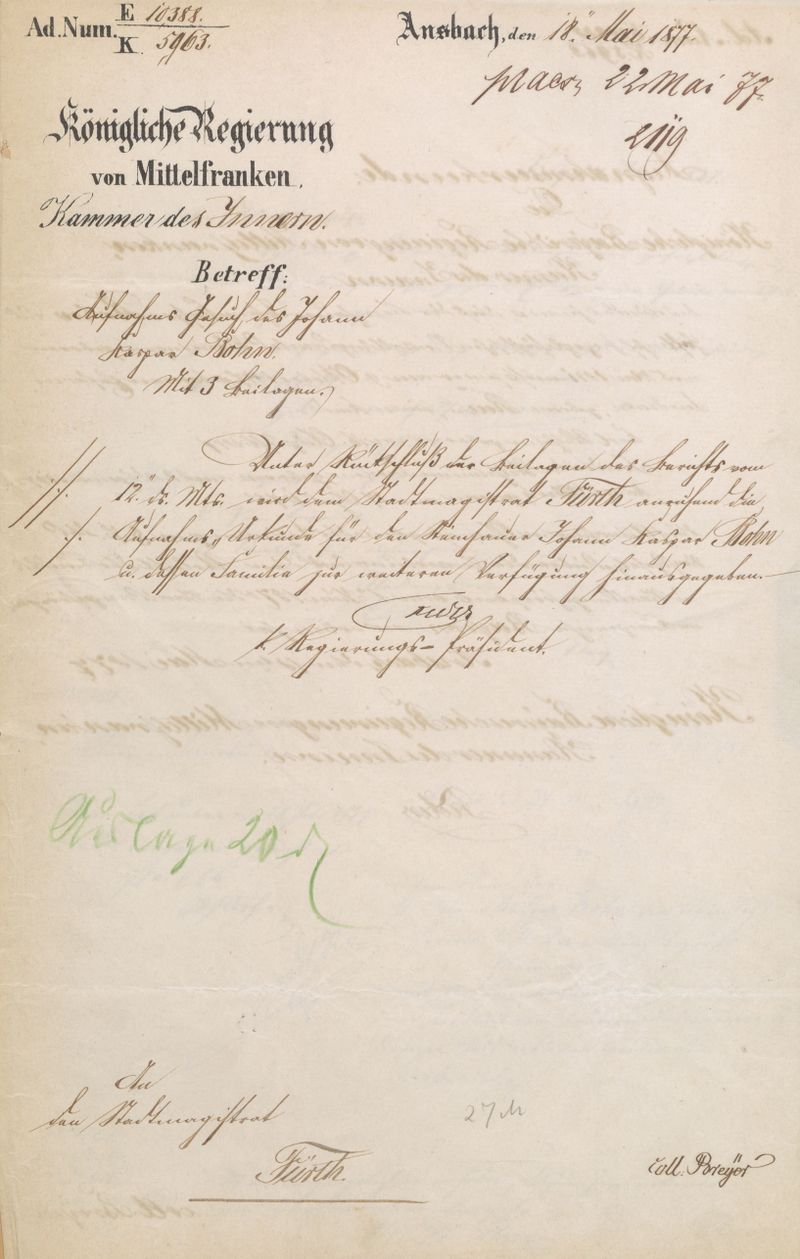 Ad. Num. E 10388.
K 5963.
Ansbach, den 18. Mai 1877.
praes. 22 Mai 77.
2119
Königliche Regierung
von Mittelfranken,
Kammer des Innern.
Betreff:
Aufnahms Gesuch des Johann
Kaspar Bohn.
Mit 3 Beilagen.
Unter Rückschluß der Beilagen des Berichts vom
12. ds. Mts. wird dem Stadtmagistrat Fürth anruhend die
Aufnahms-Urkunde für den Steinhauer Johann Kaspar Bohn
u. dessen Familie zur weiteren Verfügung hinausgegeben.
k. Regierungs-Präsident.
Auslage 20 d
An
den Stadtmagistrat
27 M
Fürth.
coll. Breyer